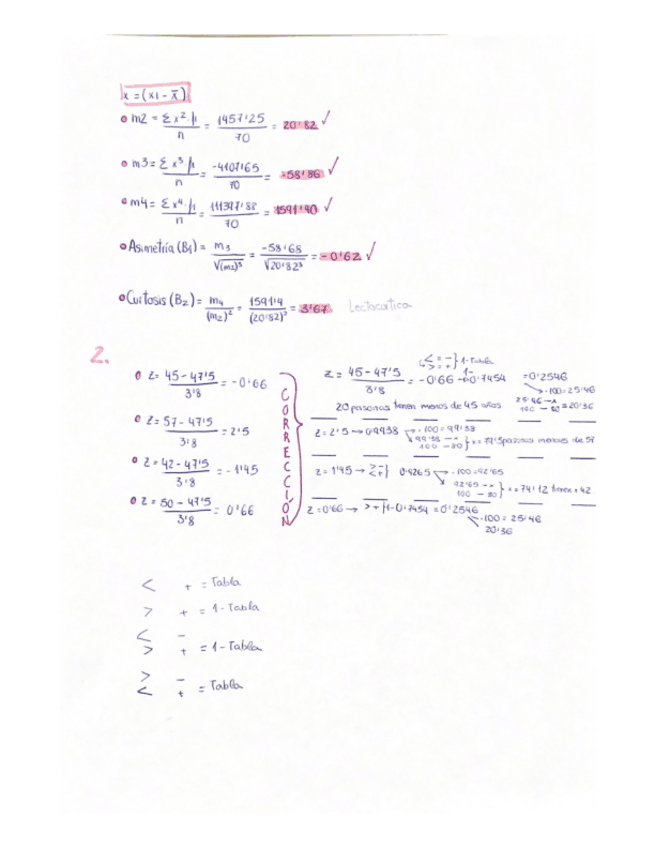 x = (xi - x̄)
m2 = Σ x² · fi / n = 1457'25 / 70 = 20'82 ✓
m3 = Σ x³ fi / n = -4107'65 / 70 = -58'86 ✓
m4 = Σ x⁴ · fi / n = 111397'88 / 70 = 1591'40 ✓
Asimetría (B1) = m3 / √(m2)³ = -58'68 / √20'82³ = -0'62 ✓
Curtosis (B2) = m4 / (m2)² = 1591'4 / (20'82)² = 3'67 Leptocúrtica
2.
z = 45 - 47'5 / 3'8 = -0'66
z = 57 - 47'5 / 3'8 = 2'5
z = 42 - 47'5 / 3'8 = -1'45
z = 50 - 47'5 / 3'8 = 0'66
CORRECCIÓN
z = 45 - 47'5 / 3'8 = -0'66 → 0'7454 = 0'2546
< = -
> = + } 1 - Tabla
1-
→ · 100 = 25'46
25'46 - x
100 - 80 = 20'36
20 personas tienen menos de 45 años
z = 2'5 → 0'9938 → · 100 = 99'38
99'38 - x
100 - 80 } x = 79'5 personas menores de 57
z = 1'45 → 0'9265 → · 100 = 92'65
92'65 - x
100 - 80 } x = 74'12 tienen + 42
z = 0'66 → > + } 1 - 0'7454 = 0'2546
· 100 = 25'46
20'36
< + = Tabla
> + = 1 - Tabla
< -
> + = 1 - Tabla
> -
< + = Tabla